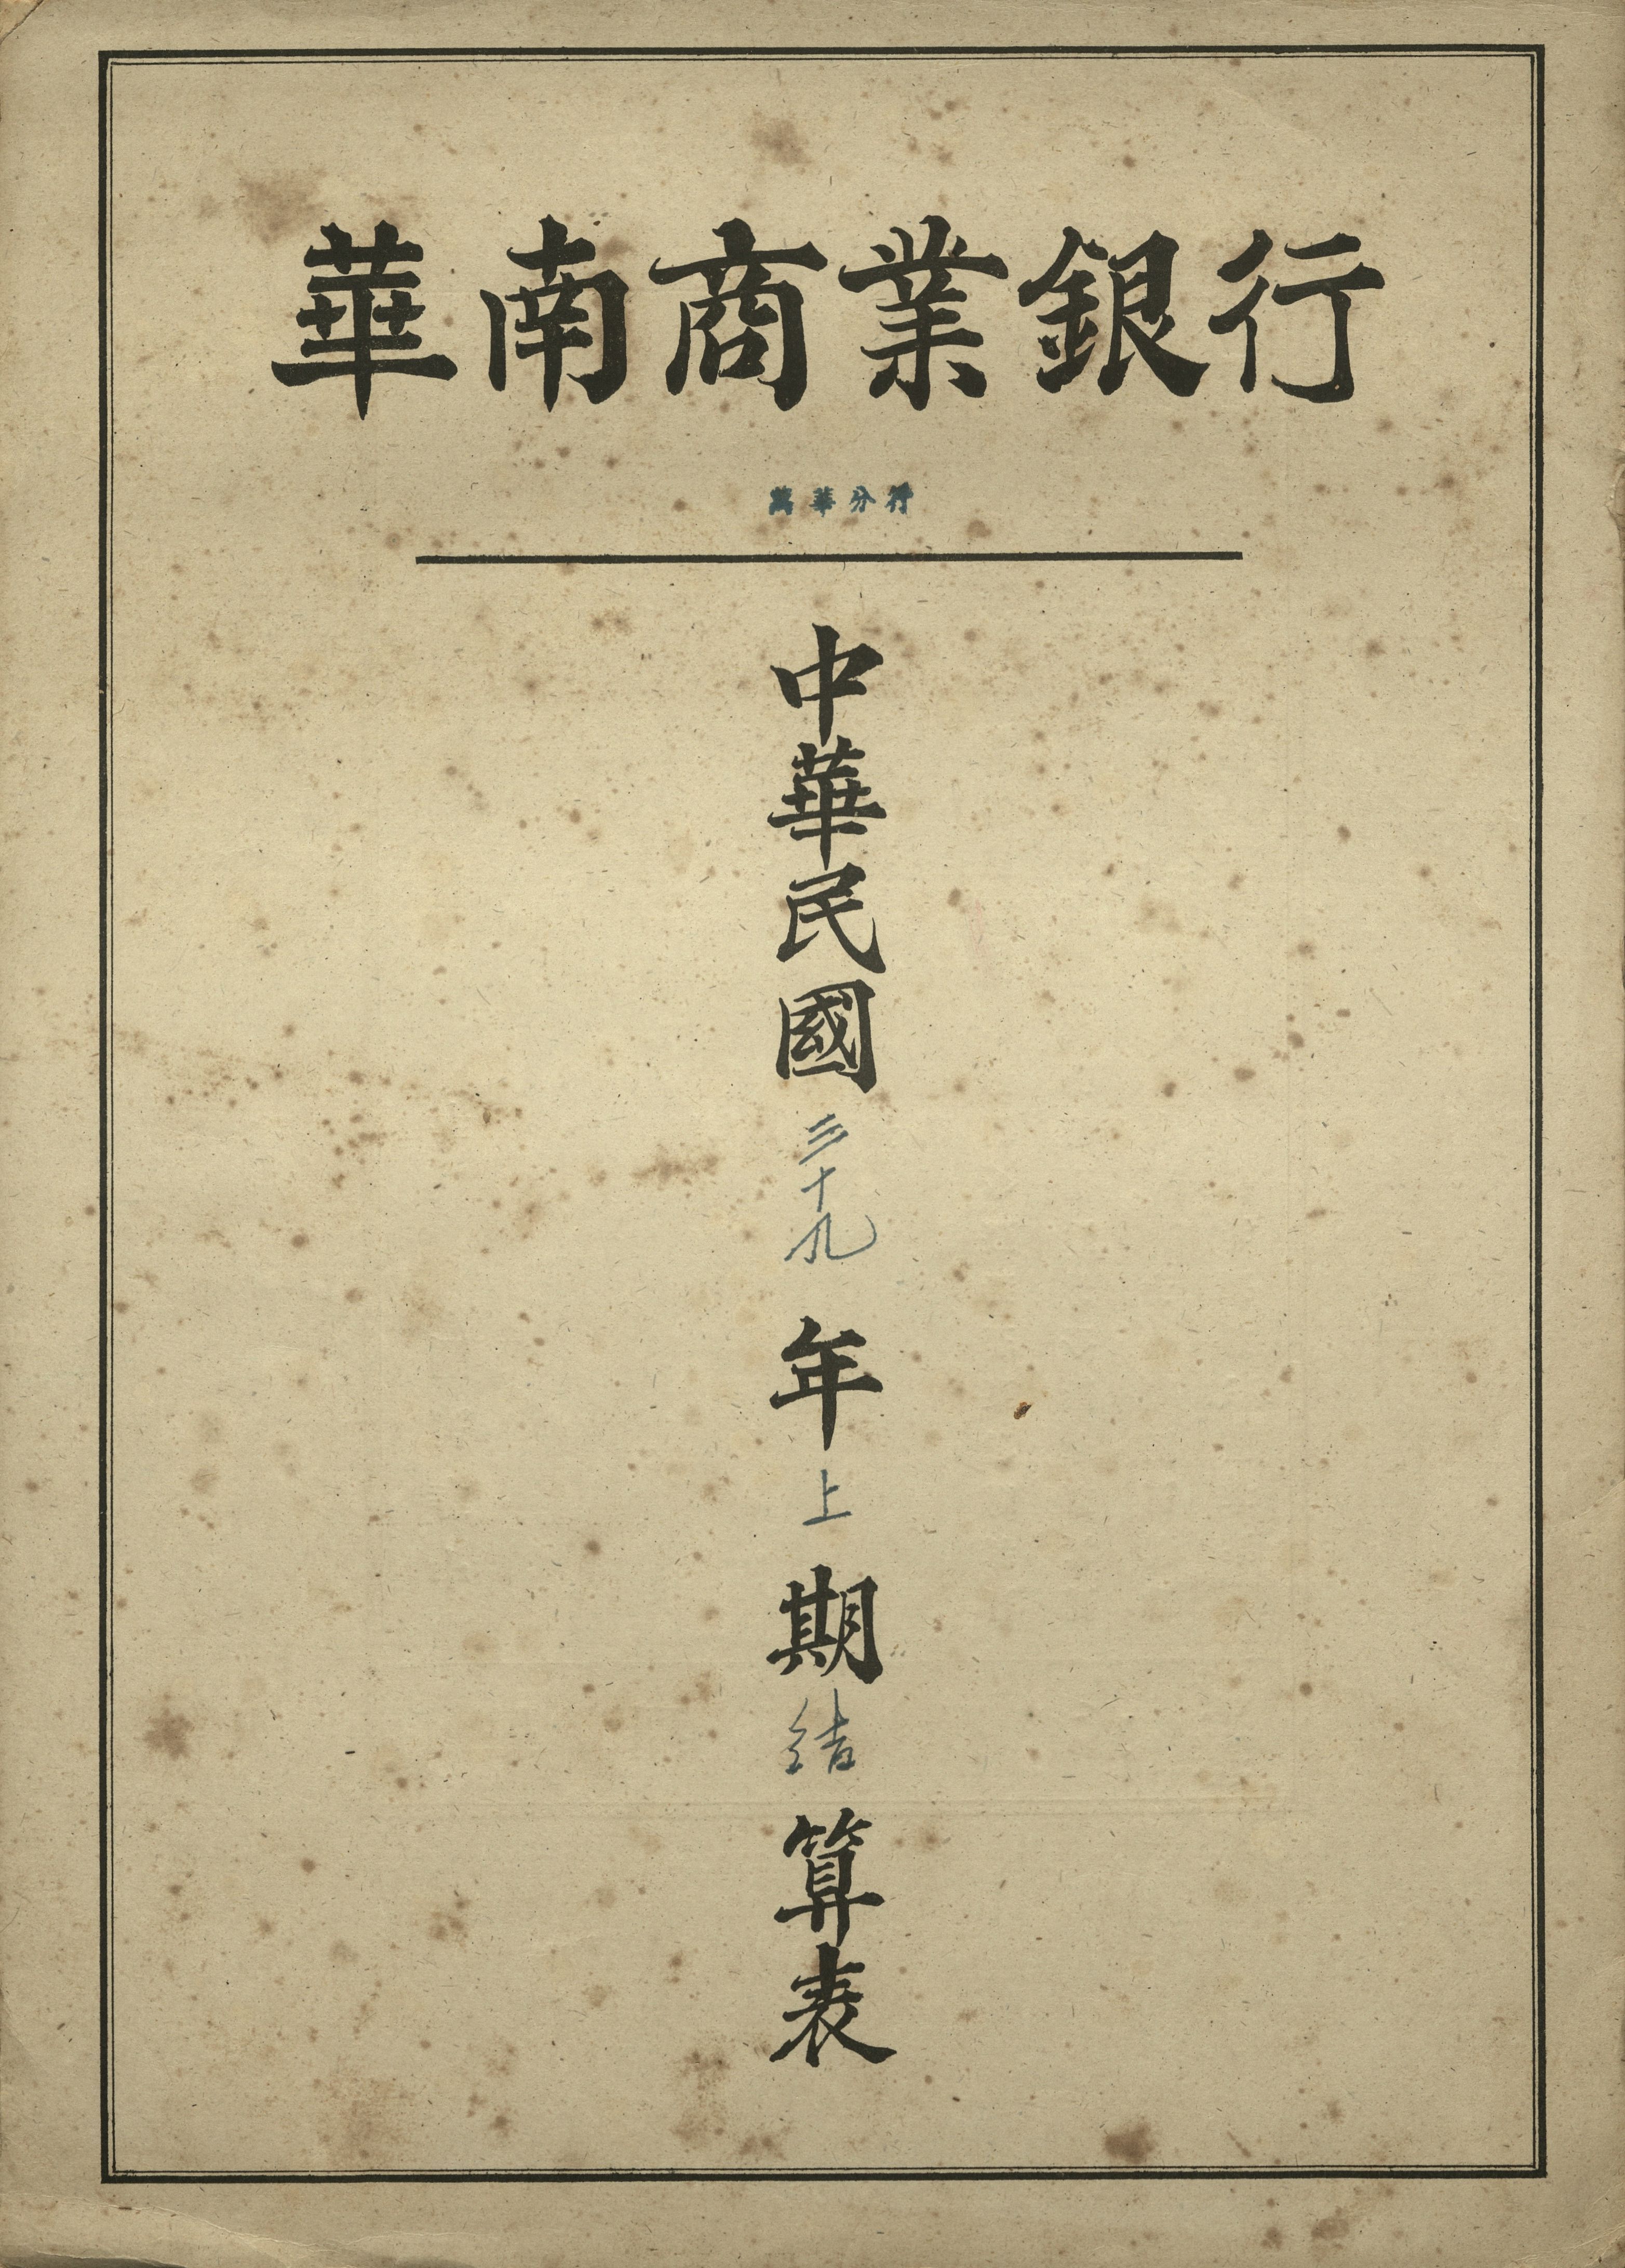 華南商業銀行
萬華分行
中華民國三十九年上期結算表